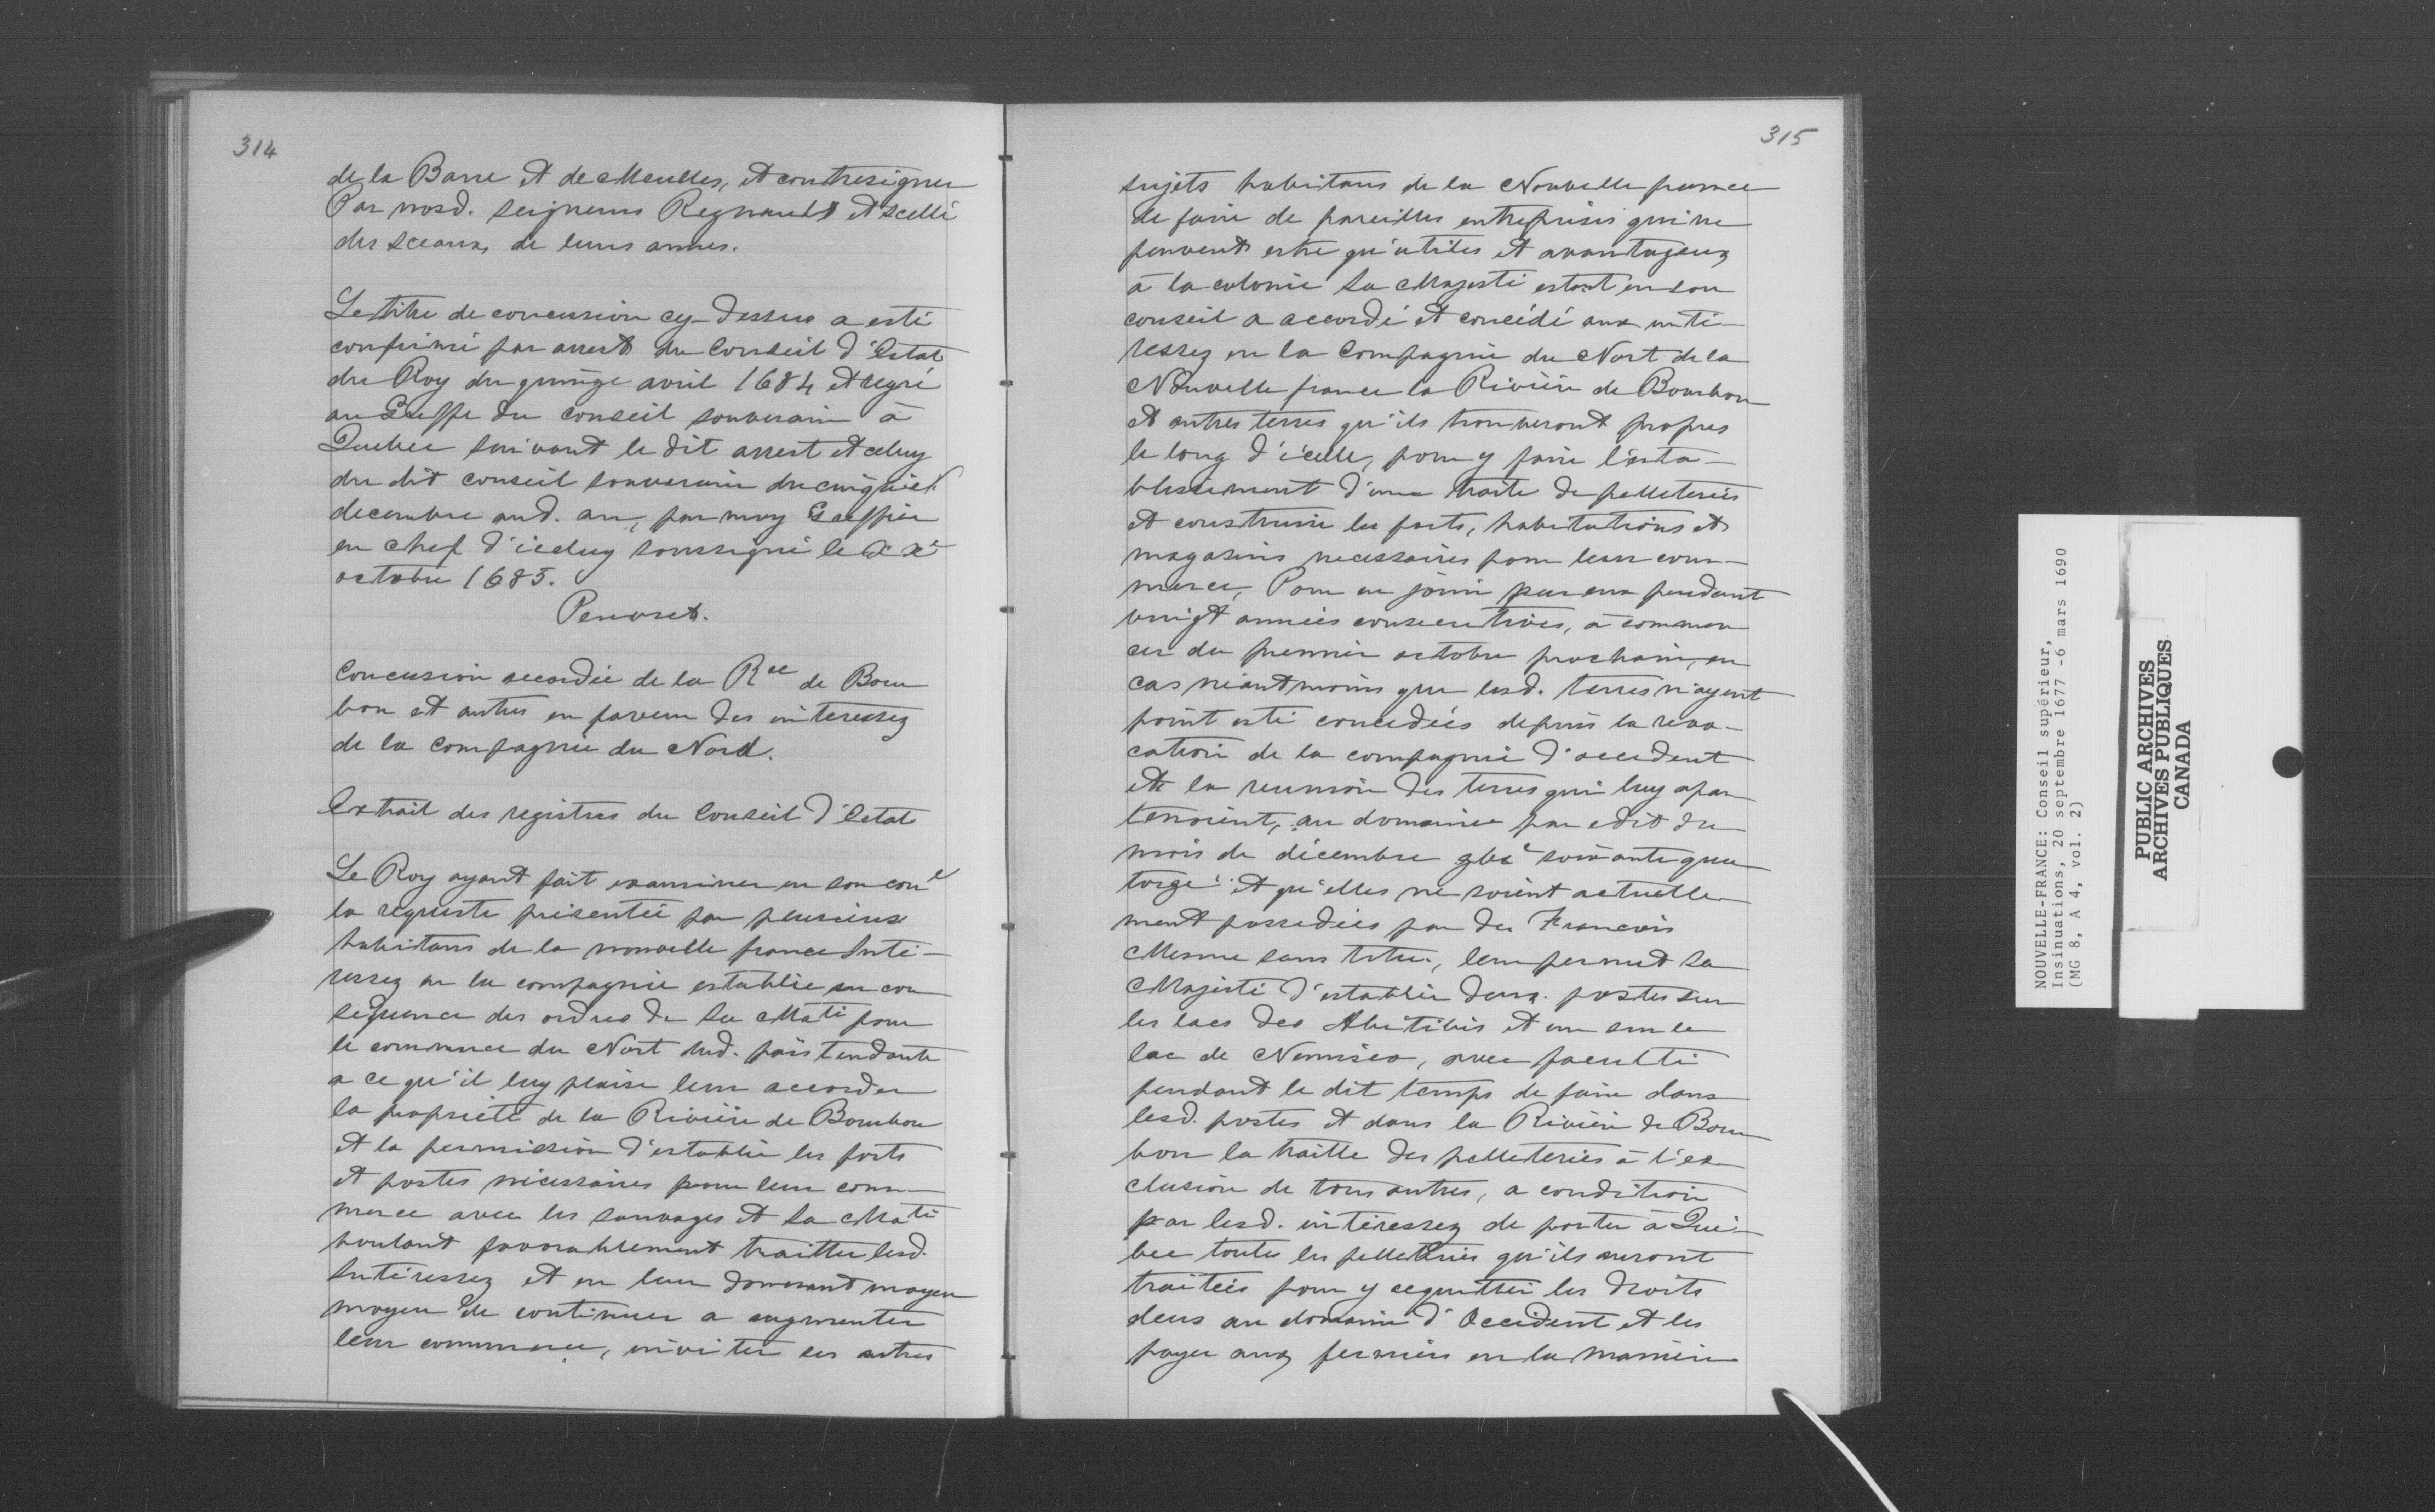 314
de la Barre et de Meulles, et contresignez
Par nosd. seigneurs Regnault et scellé
des sceaux de leurs armes.
Le titre de concession cy-dessus a esté
confirmé par arrest du Conseil d'Estat
du Roy du quinze avril 1684 et regré
au Greffe du conseil souverain à
Quebec suivant le dit arrest et celuy
du dit conseil souverain du cinquiel
decembre aud. an, par moy Greffier
en chef d'iceluy soussigné le xxe
octobre 1685.
Peuvret.
Concession accordée de la Rce de Bour
bon et autres en faveur des interessez
de la compagnie du Nord.
Extrait des registres du Conseil d'Estat
Le Roy ayant fait examiner en son conel
la requeste présentée par plusieurs
habitans de la nouvelle france Inté-
ressez en la compagnie establie en con
sequence des ordres de Sa Maté pour
le commerce du Nort dud. païs tendante
a ce qu'il luy plaise leur accorder
la propriété de la Rivière de Bourbon
et la permission d'establir les forts
et postes nécessaires pour leur com-
merce avec les sauvages et Sa Maté
voulant favorablement traitter lesd.
Intéressez et en leur donnant moyen
moyen de continuer a augmenter
leur commerce, inviter les autres
315
sujets habitans de la Nouvelle france
de faire de pareilles entreprises qui ne
peuvent estre qu'utiles et avantageuz
à la colonie Sa Majesté estant en son
conseil a accordé et concédé aux inté-
ressez en la Compagnie du Nort de la
Nouvelle france la Rivière de Bourbon
et autres terres qu'ils trouveront propres
le long d'icelle, pour y faire l'esta-
blissement d'une traite de pelleteries
et construire les forts, habitations et
magasins necessaires pour leur com-
merce, Pour en jouir par eux pendant
vingt années consecutives, à commen
cer du premier octobre prochain, en
cas néantmoins que lesd. terres n'ayent
point esté concedées depuis la revo-
cation de la compagnie d'occident
et la reunion des terres qui luy apar
tenoient, au domaine par edit du
mois de décembre soixante qua
torze et qu'elles ne soient actuelle
ment possedées par des Francois
Mesme sans titre, leur permet Sa
Majesté d'establir deux postes sur
les lacs des Abitibis et un sur le
lac de Nemisco, avec faculté
pendant le dit temps de faire dans
lesd. postes et dans la Rivière de Bour
bon la traitte des pelleteries à l'ex
clusion de tous autres, a condition
par lesd. intéressez de porter à Qué-
bec toutes les pelleteries qu'ils auront
traitées pour y acquitter les droits
deus au domaine d'Occident et les
payer aux fermiers en la maniere
NOUVELLE-FRANCE: Conseil supérieur,
Insinuations, 20 septembre 1677 -6 mars 1690
(MG 8, A 4, vol. 2)
PUBLIC ARCHIVES
ARCHIVES PUBLIQUES
CANADA